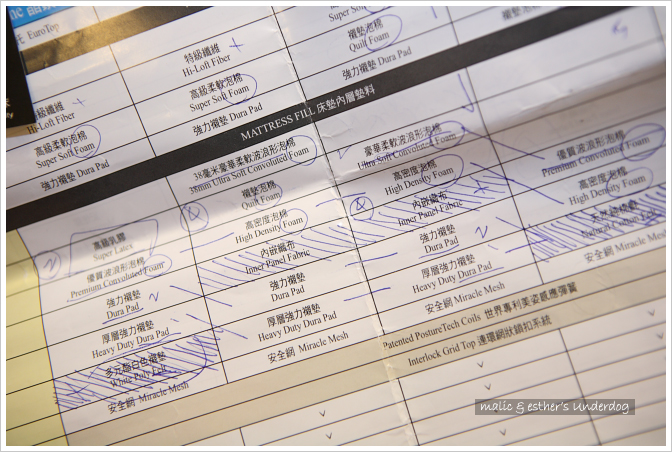 EuroTop
特級纖維
Hi-Loft Fiber
高級柔軟泡棉
Super Soft Foam
強力襯墊 Dura Pad
特級纖維
Hi-Loft Fiber
高級柔軟泡棉
Super Soft Foam
強力襯墊 Dura Pad
Super Soft Foam
襯墊泡棉
Quilt Foam
強力襯墊 Dura Pad
MATTRESS FILL 床墊內層墊料
高級乳膠
Super Latex
優質波浪形泡棉
Premium Convoluted Foam
強力襯墊
Dura Pad
厚層強力襯墊
Heavy Duty Dura Pad
多元酯白色襯墊
White Poly Felt
安全網 Miracle Mesh
38毫米豪華柔軟波浪形泡棉
38mm Ultra Soft Convoluted Foam
襯墊泡棉
Quilt Foam
高密度泡棉
High Density Foam
內嵌織布
Inner Panel Fabric
強力襯墊
Dura Pad
厚層強力襯墊
Heavy Duty Dura Pad
安全網 Miracle Mesh
豪華柔軟波浪形泡棉
Ultra Soft Convoluted Foam
高密度泡棉
High Density Foam
內嵌織布
Inner Panel Fabric
強力襯墊
Dura Pad
厚層強力襯墊
Heavy Duty Dura Pad
安全網 Miracle Mesh
優質波浪形泡棉
Premium Convoluted Foam
高密度泡棉
High Density Foam
安全網 Miracle Mesh
Patented PostureTech Coils 世界專利美姿感應彈簧
Interlock Grid Top 連環網狀鎖扣系統
malic & esther's Underdog